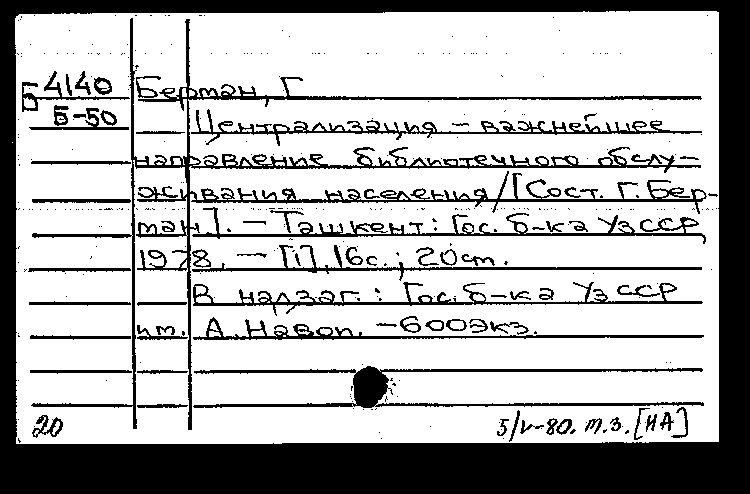 Б 4140 Берман, Г
Б-50 Централизация – важнейшее
направление библиотечного обслу-
живания населения/[Сост. Г. Бер-
ман]. – Ташкент: Гос. б-ка УзССР,
1978. – [1], 16с.; 20см.
В надзаг.: Гос. б-ка УзССР
им. А. Навои. – 600экз.
20 5/V-80. т.з. [НА]